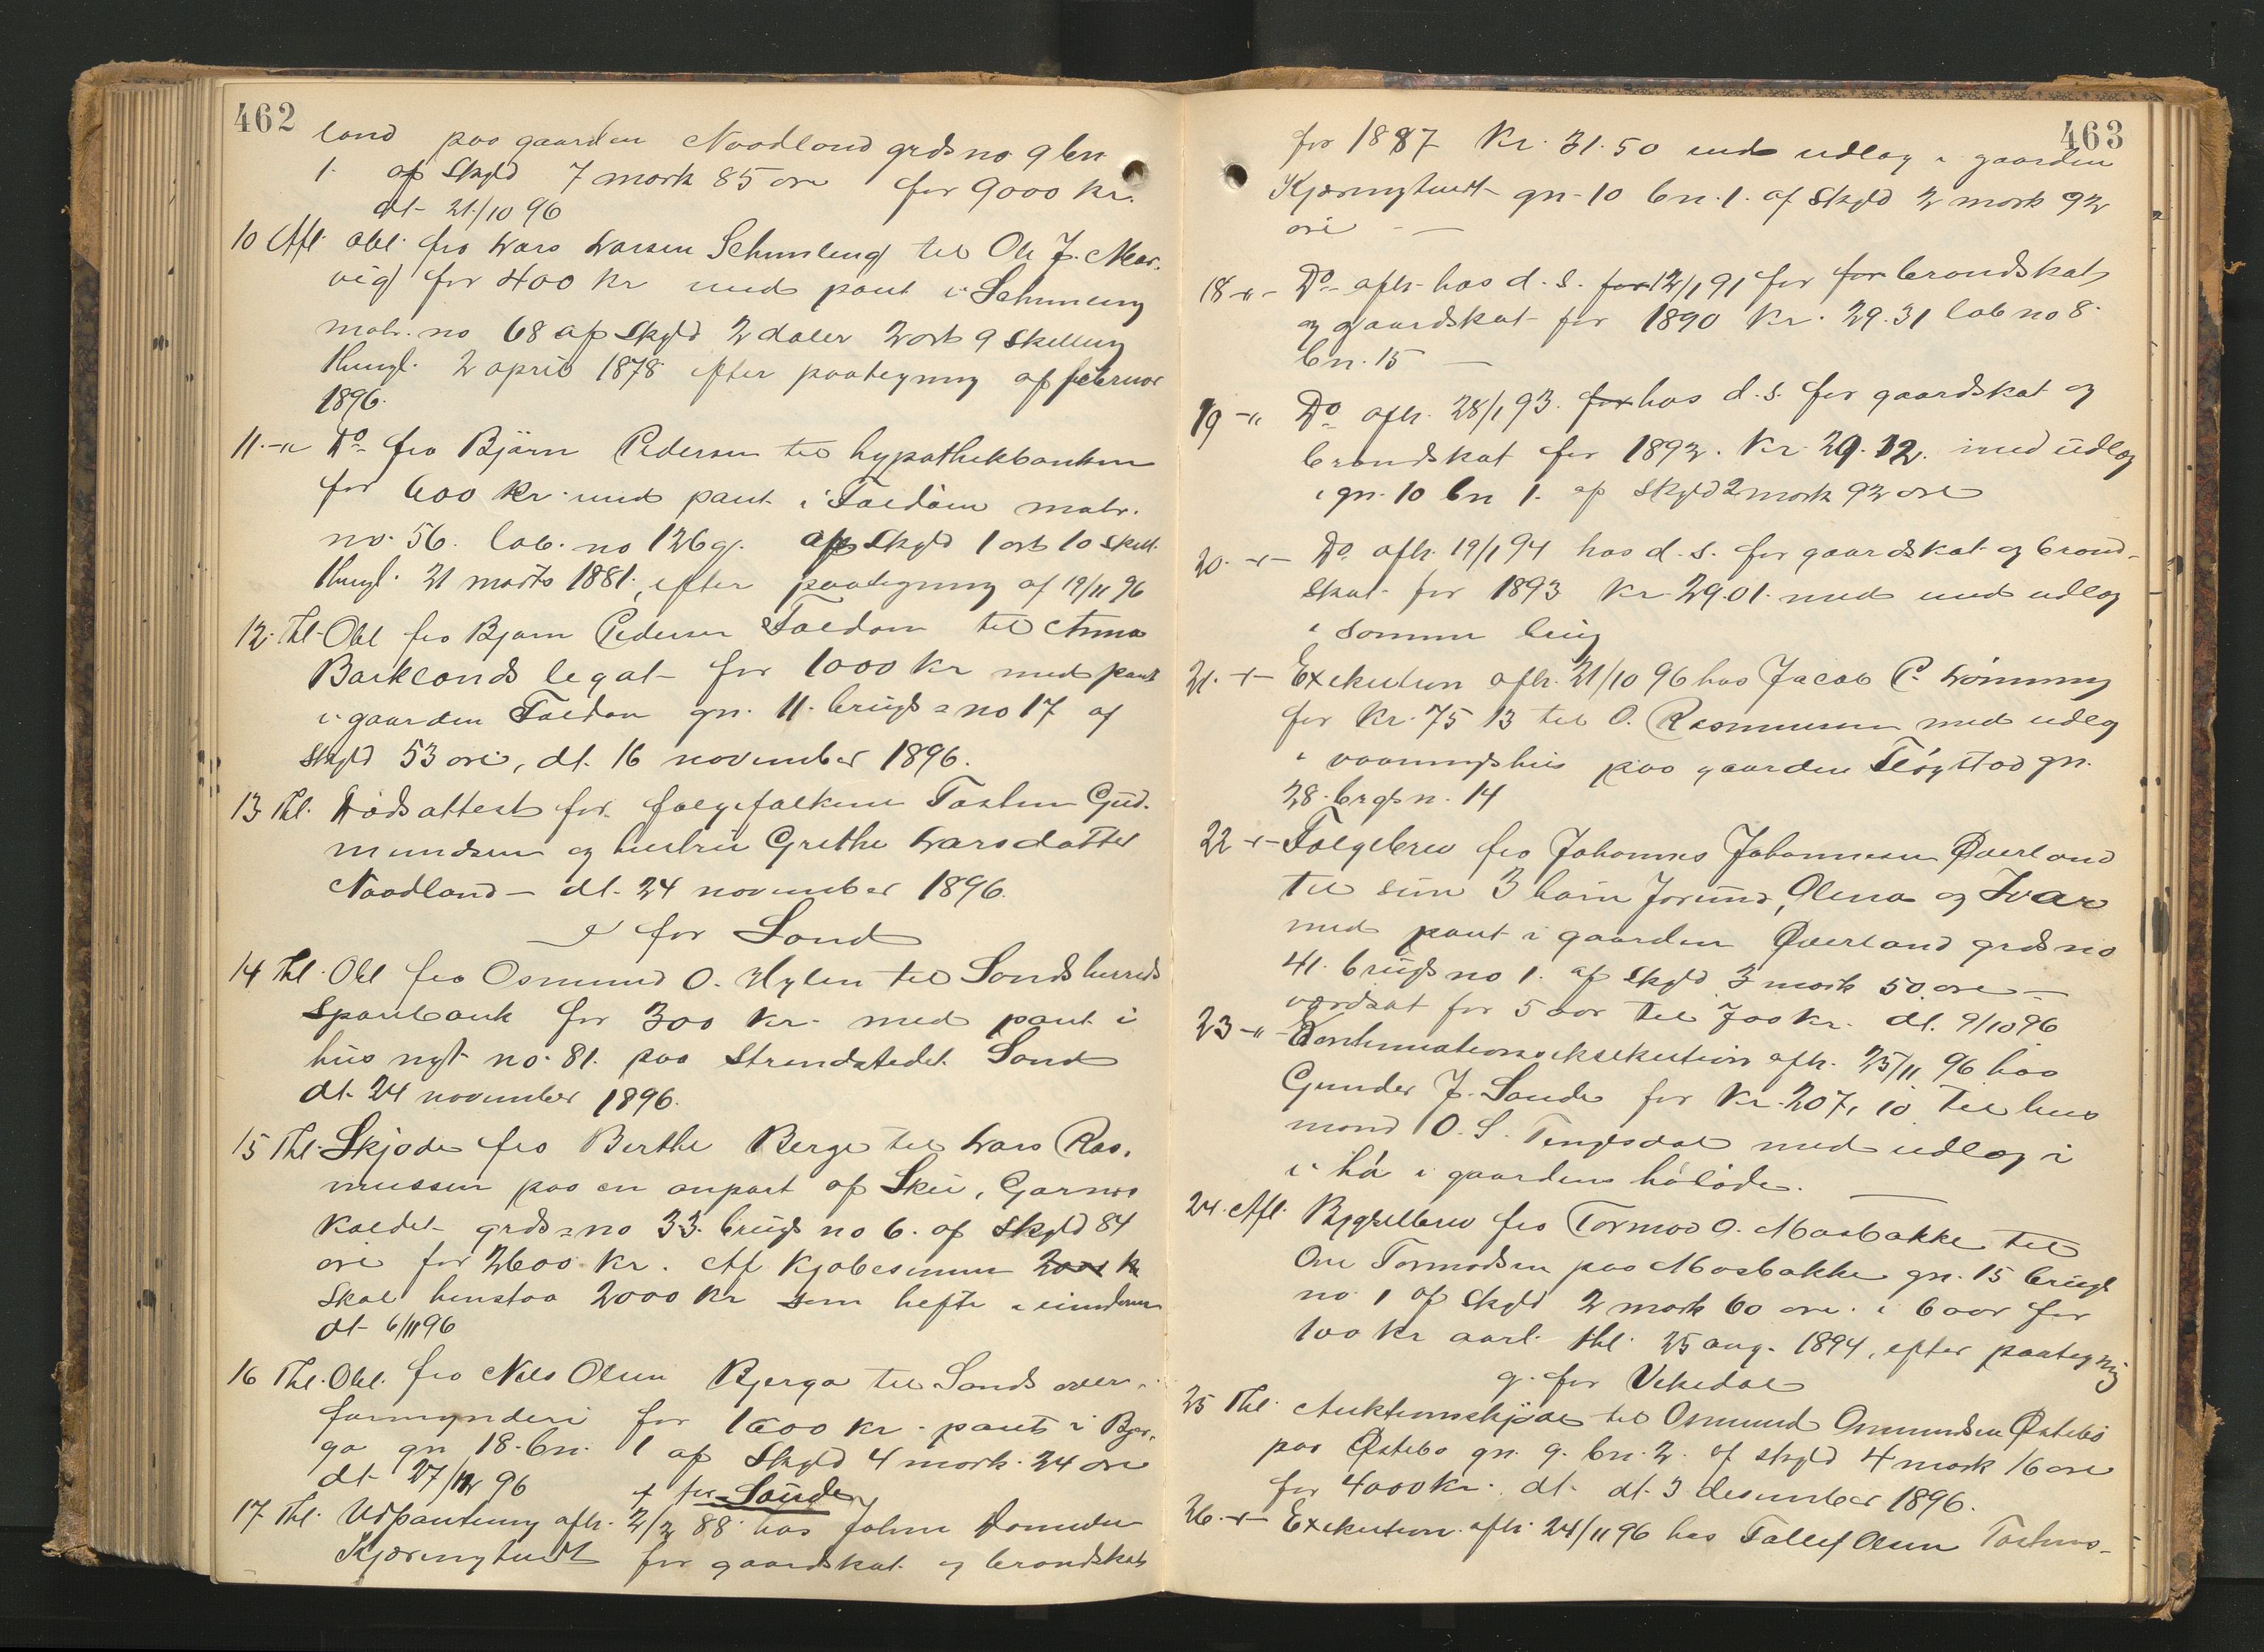 462
land paa gaarden Naadland grds no 9 bn
1. af Skyld 7 mark 85 øre for 9000 kr.
dt. 21/10 96
10 Afl. obl. fra Lars Larsen til Ole J. Mar-
vig for 400 kr med pant i
matr. no 68 af Skyld 2 daler 2 ort 9 skilling
thingl. 2 april 1878 efter paategning af februar
1896.
11.-"- Do fra Björn Pedersen til hypothekbanken
for 600 kr. med pant i matr.
no. 56. lob. no 126g. af Skyld 1 ort 10 skill.
thingl. 21 marts 1881, efter paategning af 19/11 96
12. Thl. Obl fra Bjørn Pedersen til Anna
Barklands legat for 1000 kr med pant
i gaarden gn. 11. brugs no 17 af
skyld 53 øre, dt. 16 november 1896.
13. Thl. Dødsattest for folgefolkene Tosten Gud-
mundsen og hustru Grethe Larsdatter
Naadland - dt. 24 november 1896.
e for Sand
14 Thl. Obl fra Osmund O. Hylen til Sands herreds
Sparebank for 300 kr. med pant i
hus nyt no. 81. paa Strandstedet Sand
dt. 24 november 1896.
15 Thl. Skjøde fra Berthe Berge til Lars Ras-
mussen paa en anpart af
kaldet grds no 33. brugs no 6. af Skyld 84
øre for 2600 kr. Af Kjøbesummen 2000 kr
skal henstaa 2000 kr som hefte i eiendommen
dt. 6/11 96
16 Thl. Obl. fra Nils Olsen Bjerga til Sands over-
formynderi for 1600 kr. pant i Bjer-
ga gn 18. bn. 1 af Skyld 4 mark 24 øre
dt 27/12 96
f for Saude
17 Thl. Udpantning afh. 2/2 88 hos John
for gaardskat og brandskat
463
for 1887 Kr. 31.50 med udlæg i gaarden
gn. 10 bn. 1. af Skyld 2 mark 92
øre -
18 -"- Do afh. hos d. s. for 12/1 91 for for brandskat
og gaardskat for 1890 Kr. 29.31 lob no 8.
bn. 15 -
19 -"- Do afh. 28/1 93. for hos d. s. for gaardskat og
brandskat for 1892. Kr 29.12. med udlæg
i gn. 10 bn 1. af skyld 2 mark 92 øre
20. -"- Do afh. 19/1 94 hos d. s. for gaardskat og brand-
skat for 1893 Kr 29.01. med med udlæg
i samme brug
21. -"- Exekution afh. 21/10 96 hos Jacob P. Lønning
for Kr. 75 13 til O. Rasmussen med udlæg
i vaaningshus paa gaarden Fløgstad gn.
28. brgs n. 14
22 -"- Folgebrev fra Johannes Johannesen Øverland
til sine 3 børn Jorund, Olena og Ivar
med pant i gaarden Øverland grds no
41. brugs no 1. af Skyld 3 mark 50 øre -
værdsat for 5 aar til 700 kr. dt. 9/10 96
23 -"- Kontinuationseksekution afh. 25/11 96 hos
Gunder J. Sande for Kr. 207,10 til hus
mand O. S. Tengesdal med udlæg i
i hø i gaardens høløde.
24. Afl. Bygselbrev fra Tormod O. Mosbakke til
Ove Tormodsen paa Mosbakke gn. 15 brugs
no 1 af Skyld 2 mark 60 øre i 6 aar for
100 kr aarl. thl. 25 aug. 1894, efter paategning
g. for Vikedal
25 Thl. Auktionsskjøde til Osmund Osmundsen Østebø
paa Østebø gn. 9. bn. 2. af skyld 4 mark 16 øre
for 4000 kr. dt. dt. 3 desember 1896.
26. -"- Exekution afh. 24/11 96 hos Tollef Olsen